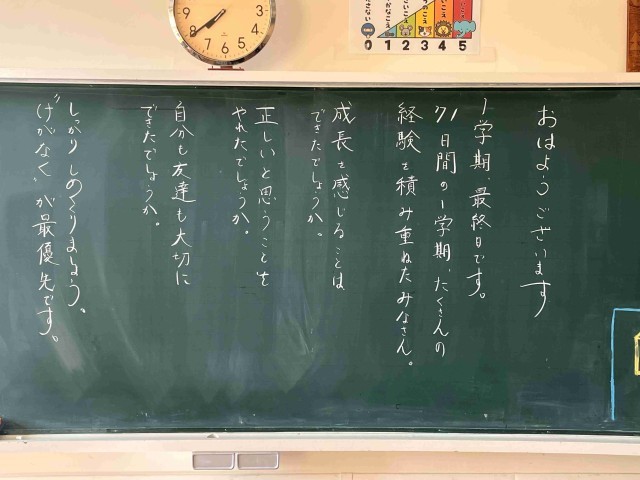 おはようございます
1学期、最終日です。
71日間の1学期、たくさんの
経験を積み重ねたみなさん。
成長を感じることは
できたでしょうか。
正しいと思うことを
やれたでしょうか。
自分も友達も大切に
できたでしょうか。
しっかりしめくくりましょう。
"けがなく"が最優先です。
0 1 2 3 4 5
3
4
5
6
7
8
9